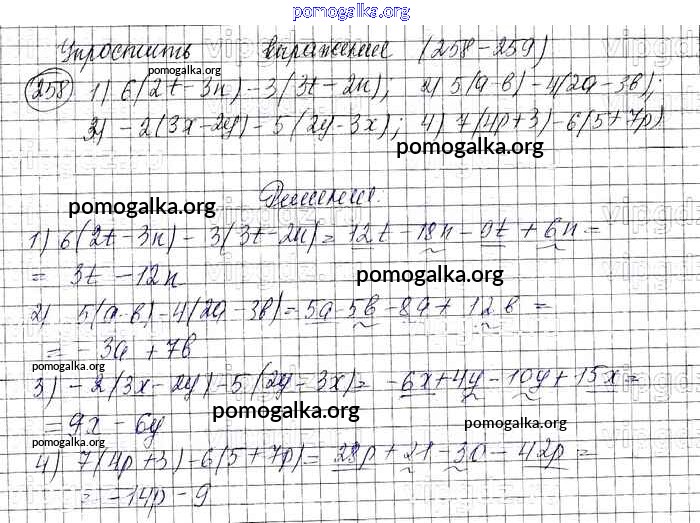 pomogalka.org
Упростить выражение (258-259)
pomogalka.org
258 1) 6(2t-3n)-3(3t-2n); 2) 5(a-b)-4(2a-3b);
3) -2(3x-2y)-5(2y-3x); 4) 7(4p+3)-6(5+7p)
pomogalka.org pomogalka.org
Решение.
pomogalka.org
1) 6(2t-3n)-3(3t-2n)=12t-18n-9t+6n=
= 3t-12n
pomogalka.org
2) 5(a-b)-4(2a-3b)=5a-5b-8a+12b=
= -3a+7b
pomogalka.org pomogalka.org
3) -2(3x-2y)-5(2y-3x)= -6x+4y-10y+15x=
=9x-6y
pomogalka.org
pomogalka.org pomogalka.org
4) 7(4p+3)-6(5+7p)=28p+21-30-42p=
= -14p-9
pomogalka.org pomogalka.org